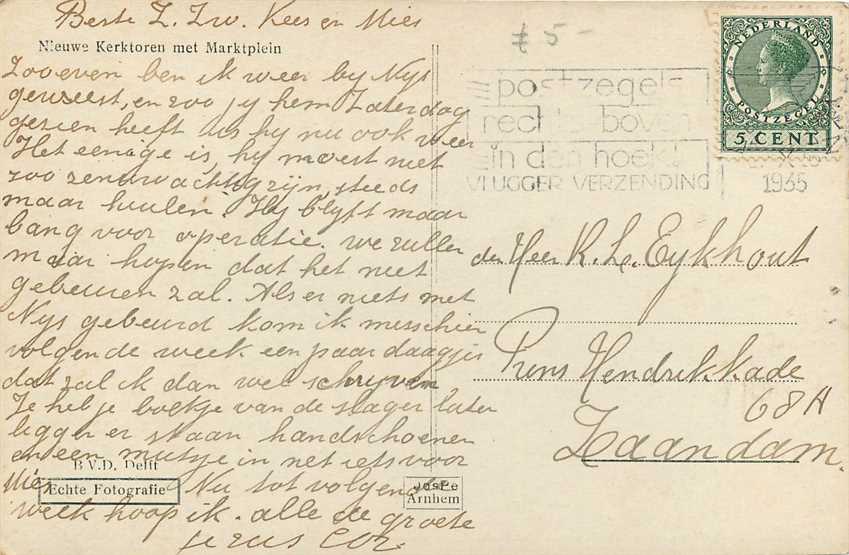 Beste Z. Zw. Kees en Mies
Nieuwe Kerktoren met Marktplein
Zooeven ben ik weer by Nys
geweest, en zoo jy hem Zaterdag
gezien heeft is hy nu ook weer
Het eenige is, hy moest niet
zoo zenuwachtig zyn, steeds
maar huilen. Hy blyft maar
bang voor operatie. we zullen
maar hopen dat het niet
gebeuren zal. Als er niets met
Nys gebeurd kom ik misschien
volgende week een paar daagjes
dat zal ik dan wel schryven
Je heb je boekje van de slager later
liggen er staan handschoenen
en een mutsje in net iets voor
B.V.D. Delft
Mies Nu tot volgende
Echte Fotografie
week hoop ik. alle de groete
je zus Cor.
JosPe
Arnhem
5-
postzegels
rechts boven
in den hoek
VLUGGER VERZENDING
1935
NEDERLAND
POSTZEGEL
5 CENT
den Heer K. L. Eykhout
Prins Hendrikkade
68A
Zaandam.